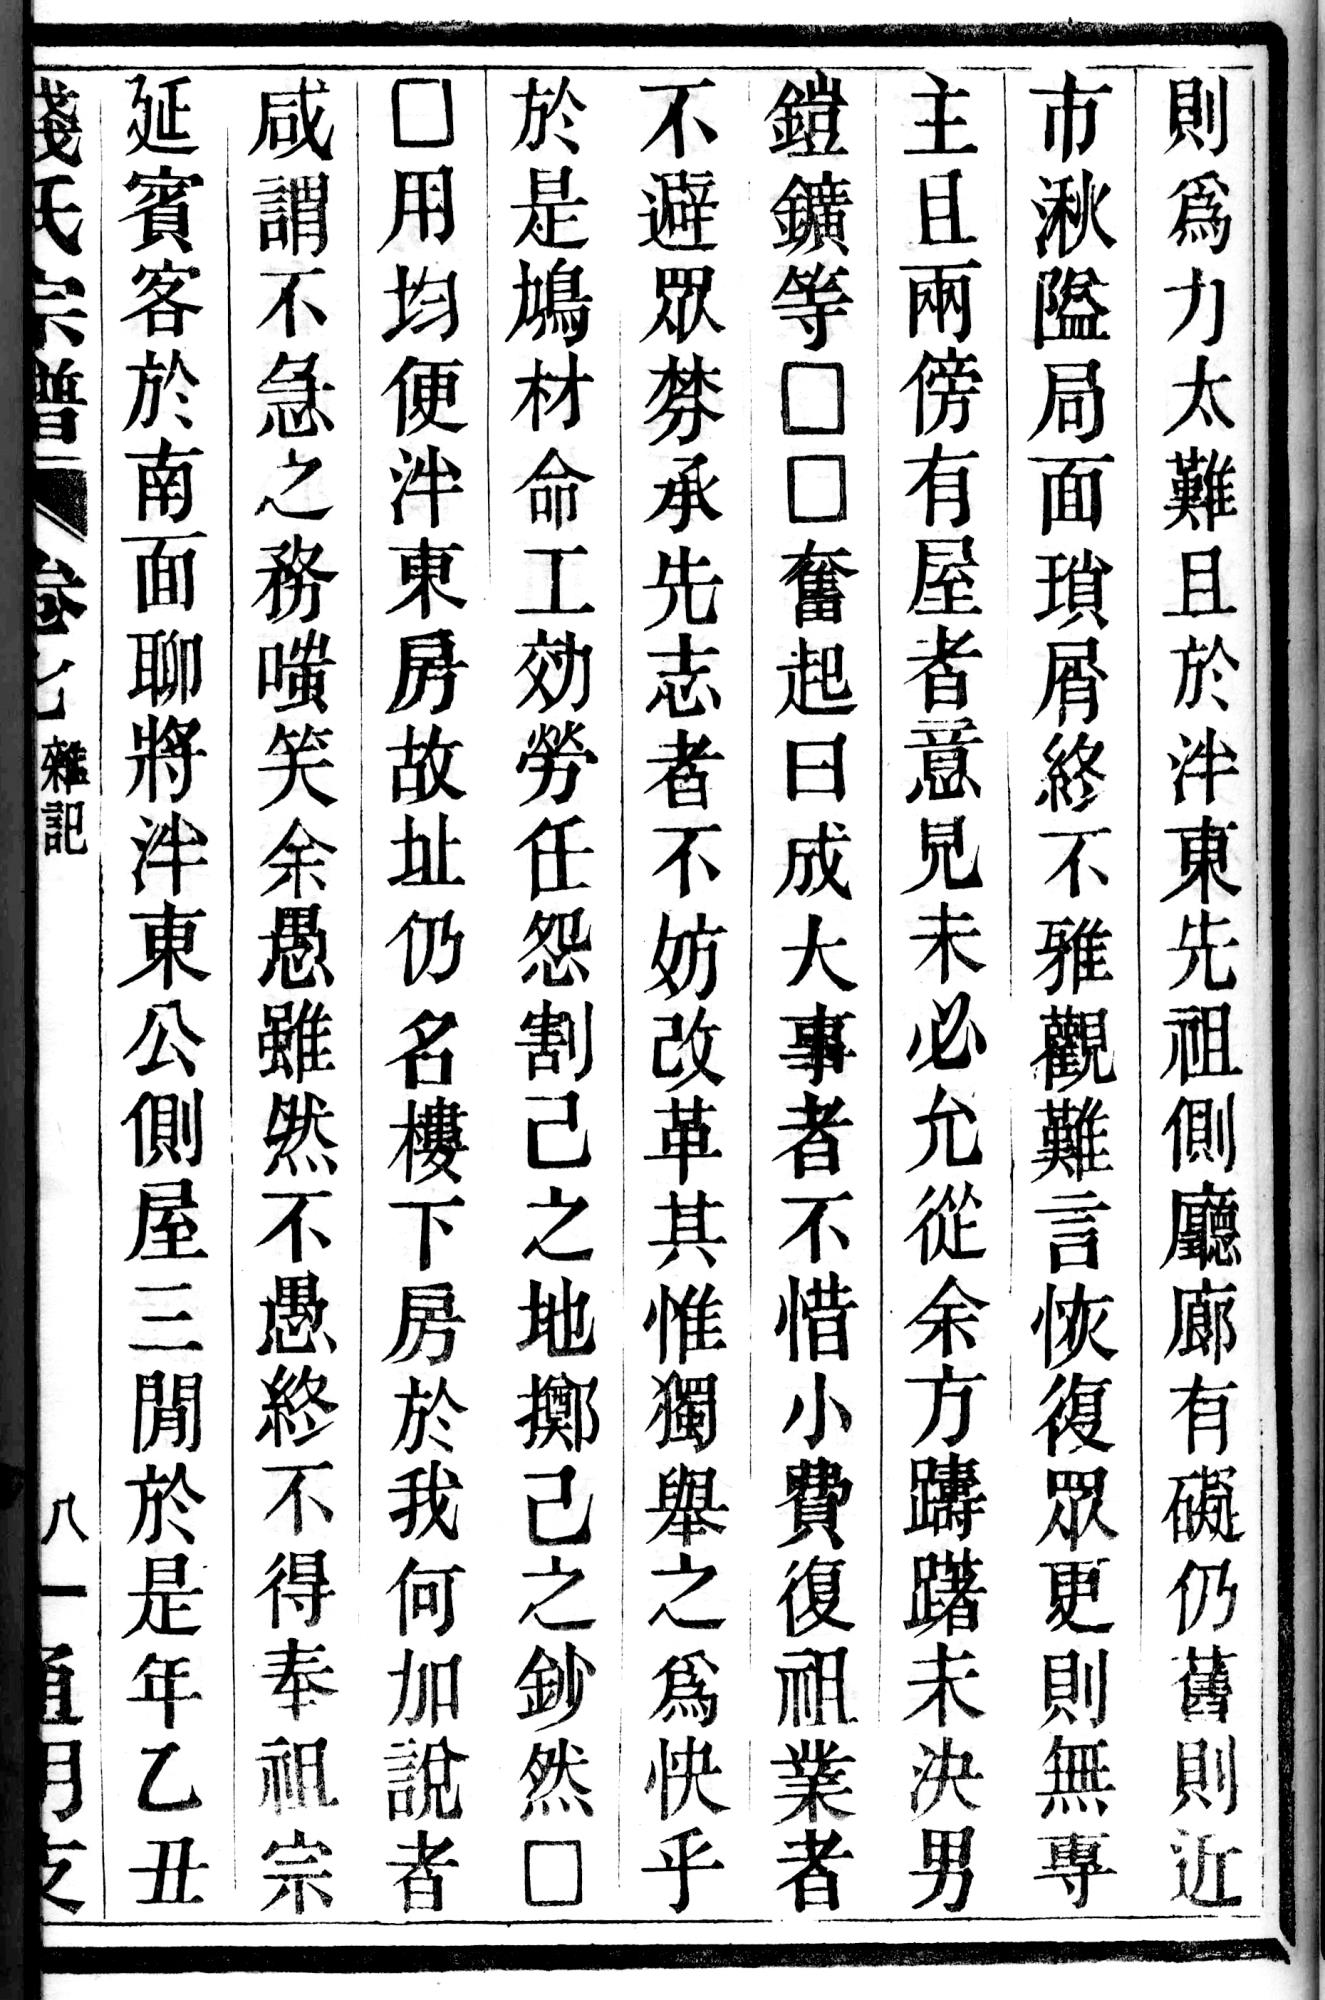 則爲力太難且於泮東先祖側廳廊有礙仍舊則近
市湫隘局面瑣屑終不雅觀難言恢復眾更則無專
主且兩傍有屋者意見未必允從余方躊躇未決男
鎧鑛等□□奮起曰成大事者不惜小費復祖業者
不避眾棼承先志者不妨改革其惟獨舉之爲快乎
於是鳩材命工効勞任怨割己之地擲己之鈔然□
□用均便泮東房故址仍名樓下房於我何加說者
咸謂不急之務嗤笑余愚雖然不愚終不得奉祖宗
延賓客於南面聊將泮東公側屋三閒於是年乙丑
錢氏宗譜 卷七 雜記 八 通明支